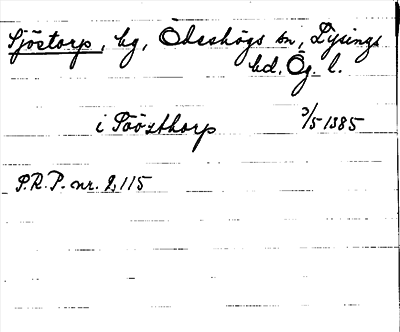 Sjöstorp, by, Ödeshögs sn, Lysings
hd, Ög. l.
i Söösthorp 3/5 1385
P.R.P. nr. 2,115